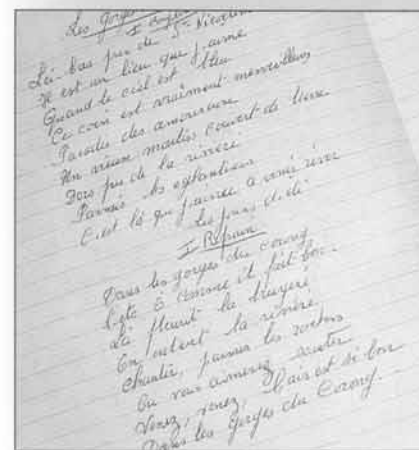 Les gorges
I Couplet
Là-bas près de St Nicodème
Il est un lieu que j'aime
Quand le ciel est bleu
Ce coin est vraiment merveilleux
Paradis des amoureux
Un vieux moulin couvert de lierre
Dort près de la rivière
Parmi les églantiers
C'est là qu'j'aimee à venir rêver
Les jours d'été.
I Refrain
Dans les gorges du Corong
l'été ô comme il fait bon.
Là fleurit la bruyère
On entend la rivière
Chanter, parmi les rochers
Ou vous aimerez
Venez, venez, l'air est si bon
Dans les gorges du Corong.